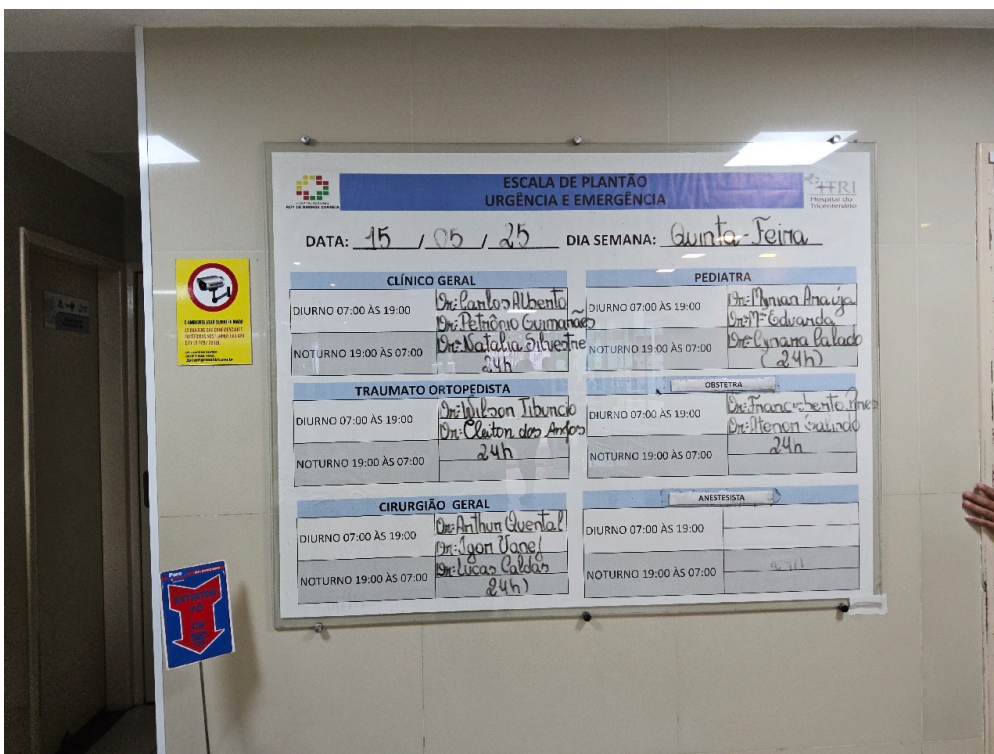 ESCALA DE PLANTÃO
URGÊNCIA E EMERGÊNCIA
HTRI
Hospital do
Tricentenário
DATA: 15 / 05 / 25 DIA SEMANA: Quinta-Feira
CLÍNICO GERAL
DIURNO 07:00 ÀS 19:00
Dr: Carlos Alberto
Dr: Petrônio Guimarães
NOTURNO 19:00 ÀS 07:00
Dr: Natalia Silvestre
24h
PEDIATRA
DIURNO 07:00 ÀS 19:00
Dr: Myrian Araújo
Dr: Mª Eduarda
NOTURNO 19:00 ÀS 07:00
Dr: Cynara Calado
(24h)
TRAUMATO ORTOPEDISTA
DIURNO 07:00 ÀS 19:00
Dr: Wilson Tiburcio
Dr: Cleiton dos Anjos
NOTURNO 19:00 ÀS 07:00
24h
OBSTETRA
DIURNO 07:00 ÀS 19:00
Dr:
Dr: Galindo
NOTURNO 19:00 ÀS 07:00
24h
CIRURGIÃO GERAL
DIURNO 07:00 ÀS 19:00
Dr: Arthur Quental
Dr: Igor
NOTURNO 19:00 ÀS 07:00
Dr: Lucas Caldas
24h)
ANESTESISTA
DIURNO 07:00 ÀS 19:00
NOTURNO 19:00 ÀS 07:00
EXTINTOR
PÓ